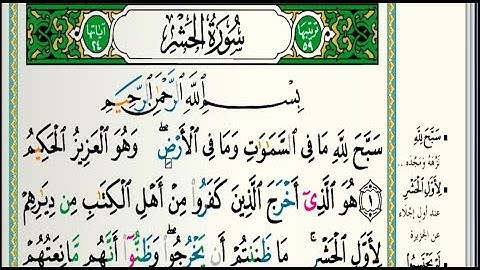 ترتيبها ٥٩
سُورَةُ الحَشْرِ
آياتها ٢٤
بِسْمِ ٱللَّهِ ٱلرَّحْمَٰنِ ٱلرَّحِيمِ
سَبَّحَ لِلَّهِ مَا فِى ٱلسَّمَٰوَٰتِ وَمَا فِى ٱلْأَرْضِ ۖ وَهُوَ ٱلْعَزِيزُ ٱلْحَكِيمُ
١ هُوَ ٱلَّذِىٓ أَخْرَجَ ٱلَّذِينَ كَفَرُوا۟ مِنْ أَهْلِ ٱلْكِتَٰبِ مِن دِيَٰرِهِمْ
لِأَوَّلِ ٱلْحَشْرِ ۚ مَا ظَنَنتُمْ أَن يَخْرُجُوا۟ ۖ وَظَنُّوٓا۟ أَنَّهُم مَّانِعَتُهُمْ
سَبَّحَ لِلَّهِ
نزّهه ومجّده ..
لِأَوَّلِ الْحَشْرِ
عند أول إجلاء
عن الجزيرة